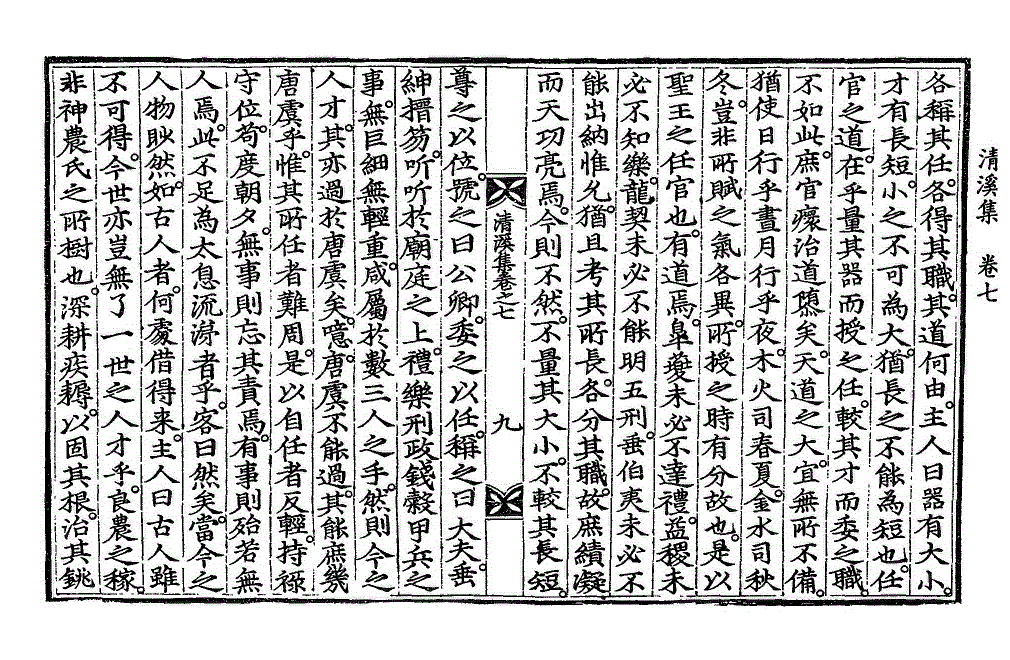 清溪集 卷七
各稱其任。各得其職。其道何由。主人曰器有大小。
才有長短。小之不可為大。猶長之不能為短也。任
官之道。在乎量其器而授之任。較其才而委之職。
不如此。庶官瘝治道隳矣。天道之大。宜無所不備。
猶使日行乎晝月行乎夜。木火司春夏。金水司秋
冬。豈非所賦之氣各異。所授之時有分故也。是以
聖王之任官也。有道焉。皐夔未必不達禮。益稷未
必不知樂。龍契未必不能明五刑。垂伯夷未必不
能出納惟允。猶且考其所長。各分其職。故庶績凝
而天功亮焉。今則不然。不量其大小。不較其長短。
清溪集卷之七
九
尊之以位。號之曰公卿。委之以任。稱之曰大夫。垂
紳搢笏。听听於廟庭之上。禮樂刑政錢穀甲兵之
事。無巨細無輕重。咸屬於數三人之手。然則今之
人才。其亦過於唐虞矣。噫。唐虞不能過。其能庶幾
唐虞乎。惟其所任者難周。是以自任者反輕。持祿
守位。苟度朝夕。無事則忘其責焉。有事則殆若無
人焉。此不足為太息流涕者乎。客曰然矣。當今之
人物眇然。如古人者。何處借得來。主人曰古人雖
不可得。今世亦豈無了一世之人才乎。良農之稼。
非神農氏之所樹也。深耕疾耨。以固其根。治其銚